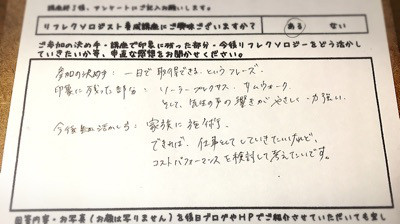 講座終了後、アンケートにご記入お願いします。
リフレクソロジスト養成講座にご興味ございますか? ある ない
ご参加の決め手・講座で印象に残った部分・今後リフレクソロジーをどう活かし
ていきたいか等、率直な感想をお聞かせください。
参加の決め手：一日で取得できる、というフレーズ。
印象に残った部分：ソーラープレクサス、サムウォーク。
そして、先生の声の響きがやさしく力強い。
今後 活かしたい： 家族に施術。
できれば、仕事としてしていきたいけれど、
コストパフォーマンスを検討して考えたいです。
内容・お写真(お顔は写りません)を後日ブログやHPでご紹介させていただいても宜し